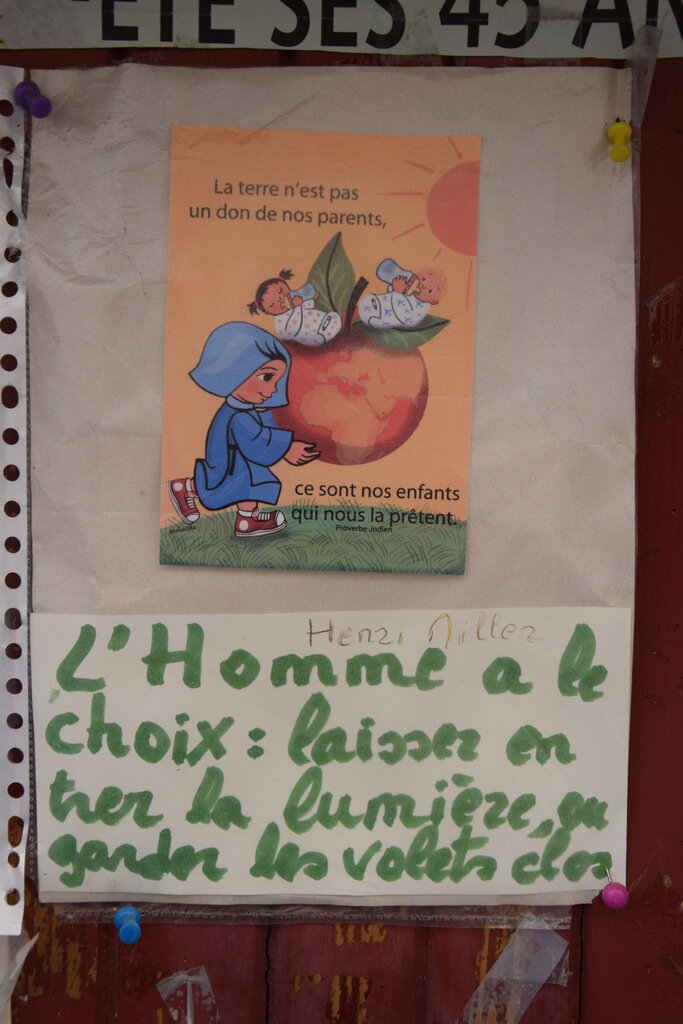 ÊTE SES 45 AN
La terre n'est pas
un don de nos parents,
ce sont nos enfants
qui nous la prêtent.
Proverbe Indien
Henri Miller
L'Homme a le
choix : laisser en
trer la lumière, ou
garder les volets clos